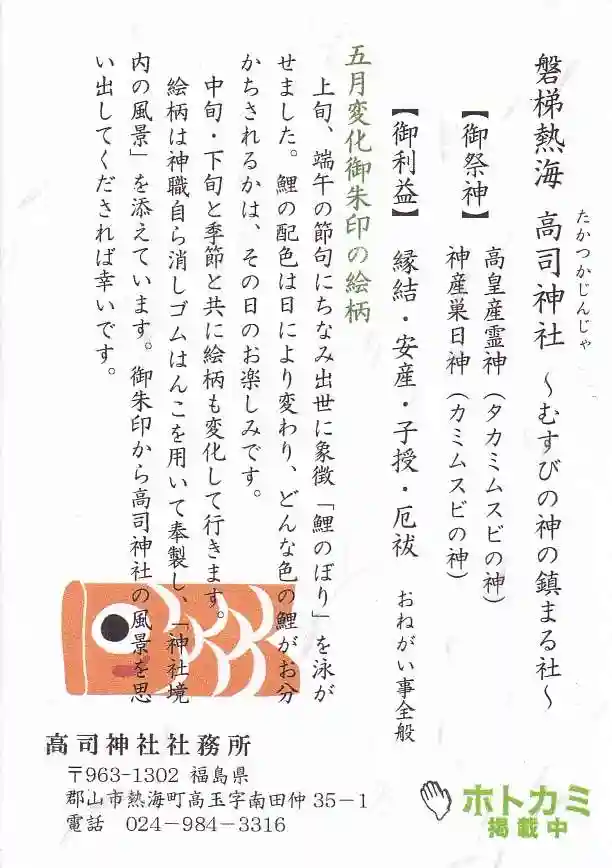 磐梯熱海 高司神社 ～むすびの神の鎮まる社～
たかつかじんじゃ
【御祭神】 高皇産霊神（タカミムスビの神）
神産巣日神（カミムスビの神）
【御利益】 縁結・安産・子授・厄祓 おねがい事全般
五月変化御朱印の絵柄
上旬、端午の節句にちなみ出世に象徴「鯉のぼり」を泳が
せました。鯉の配色は日により変わり、どんな色の鯉がお分
かちされるかは、その日のお楽しみです。
中旬・下旬と季節と共に絵柄も変化して行きます。
絵柄は神職自ら消しゴムはんこを用いて奉製し、「神社境
内の風景」を添えています。御朱印から高司神社の風景を思
い出してくだされば幸いです。
高司神社社務所
〒963-1302 福島県
郡山市熱海町高玉字南田仲35－1
電話 024－984－3316
ホトカミ
掲載中